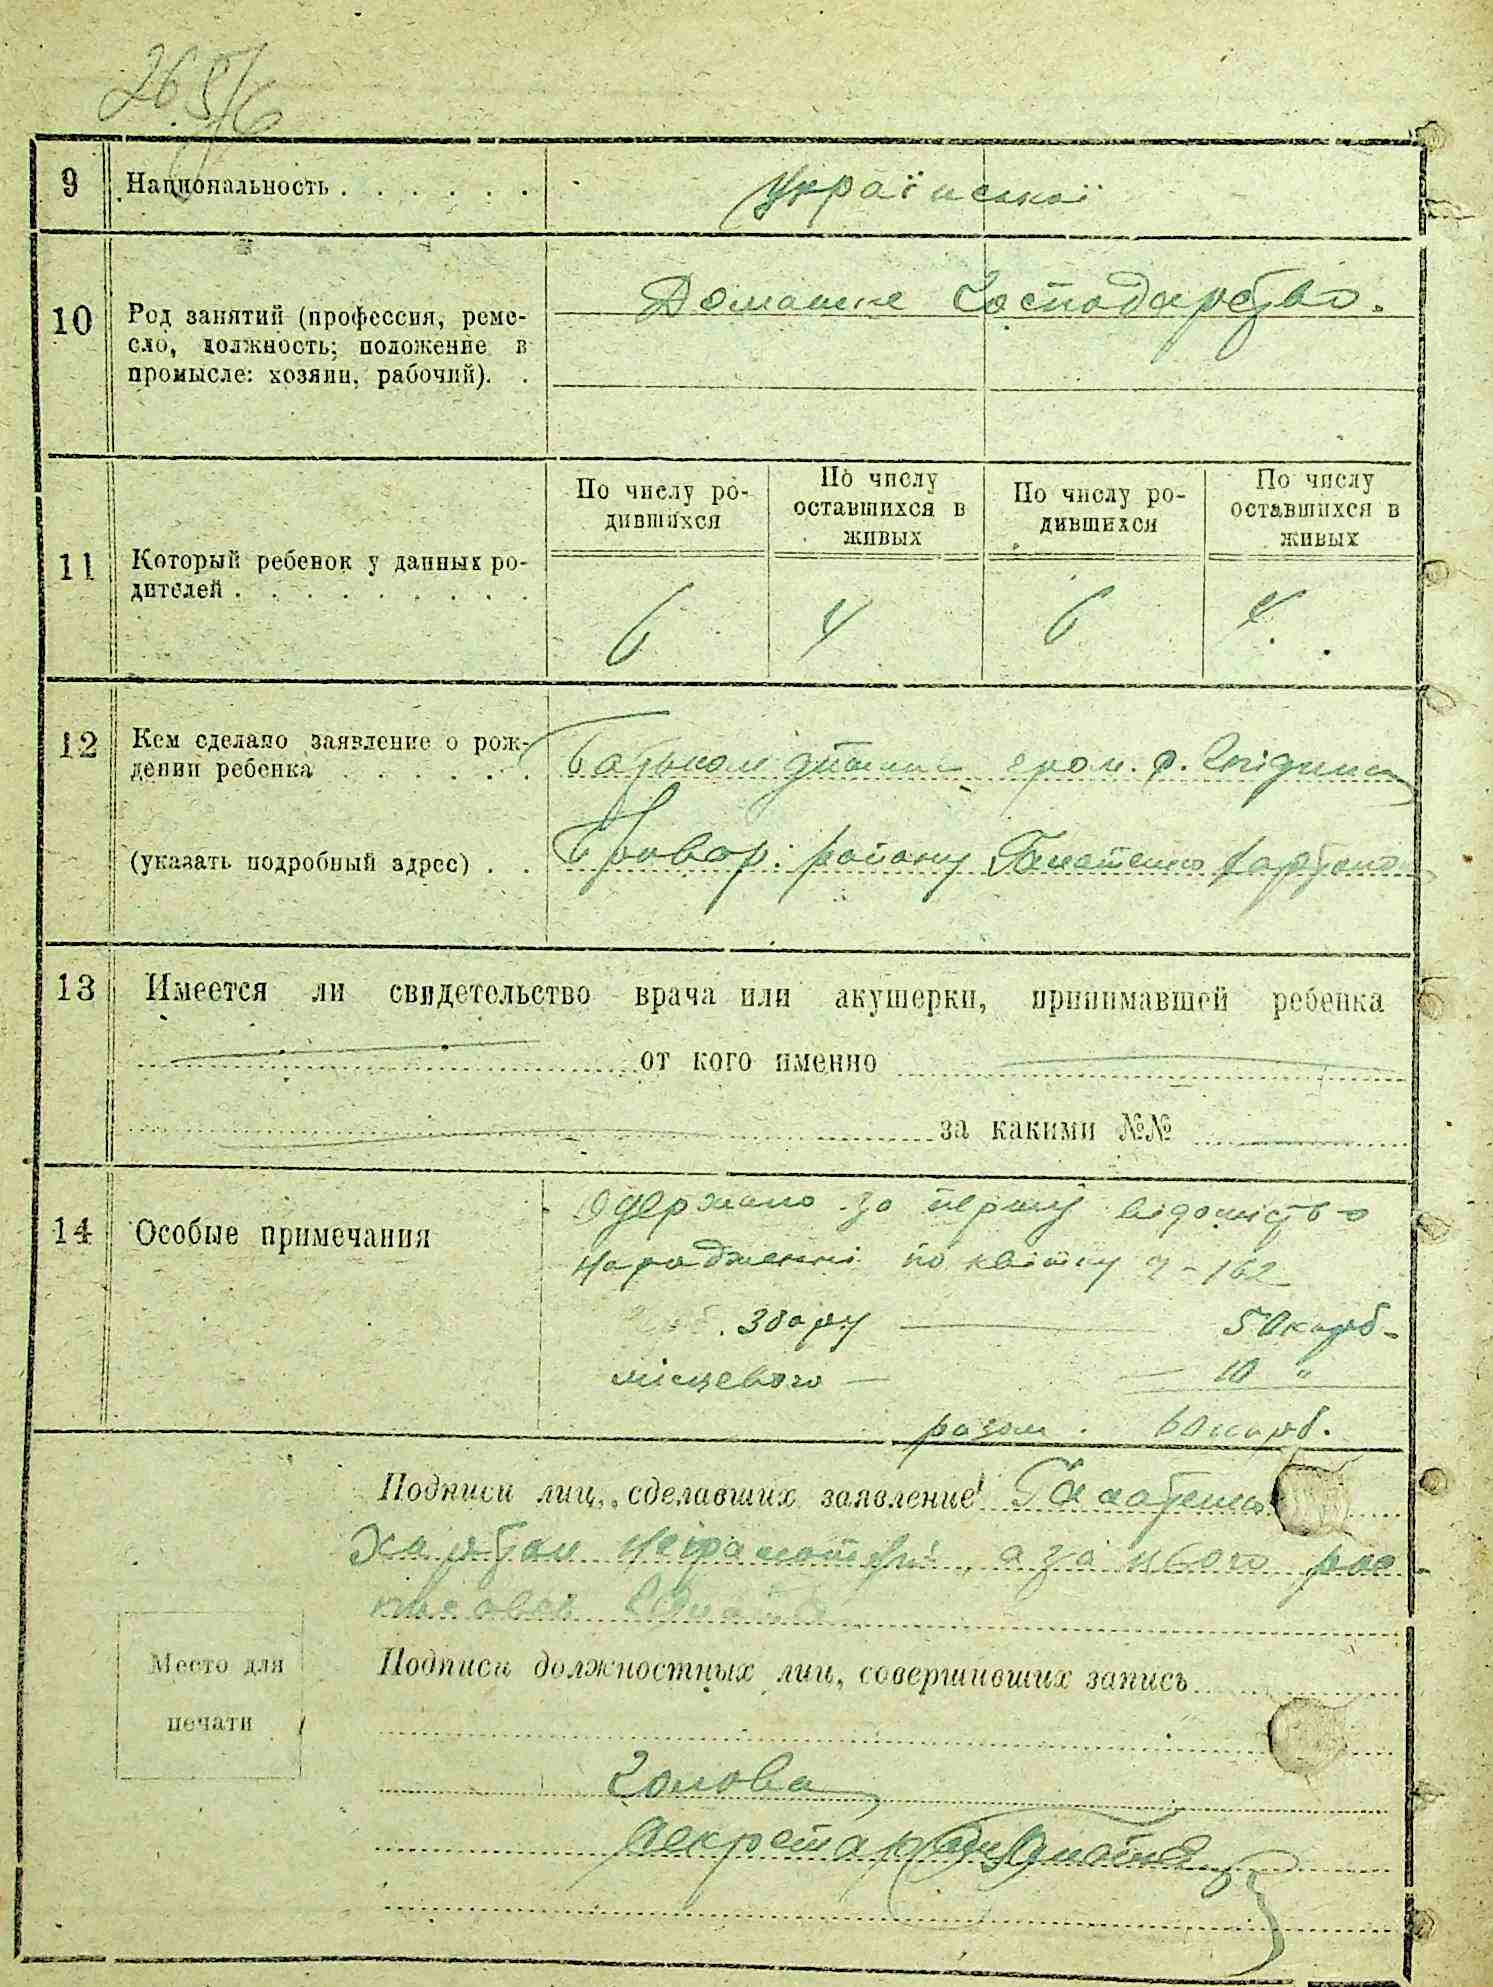 9 Национальность . . . . . .
української
10 Род занятий (профессия, реме-
сло, должность; положение в
промысле: хозяин, рабочий). .
Домашне господарство.
11 Который ребенок у данных ро-
дителей . . . . . . . . .
По числу ро-
дившихся
По числу
оставшихся в
живых
По числу ро-
дившихся
По числу
оставшихся в
живых
6 4 6 4.
12 Кем сделано заявление о рож-
дении ребенка . . . . . .
Батьком дитини гром. с. Гнідина
(указать подробный адрес) . .
Бровар. району
13 Имеется ли свидетельство врача или акушерки, принимавшей ребенка
от кого именно
за какими №№
14 Особые примечания
Одержано за першу відомість о
народженні по квітку ч-162
збору — 50 карб-
місцевого — — 10 "
разом . 60 карб.
Подписи лиц, сделавших заявление
неграмотний, а за нього рос-
писався
Место для
печати
Подписи должностных лиц, совершивших запись
Голова
Секретар